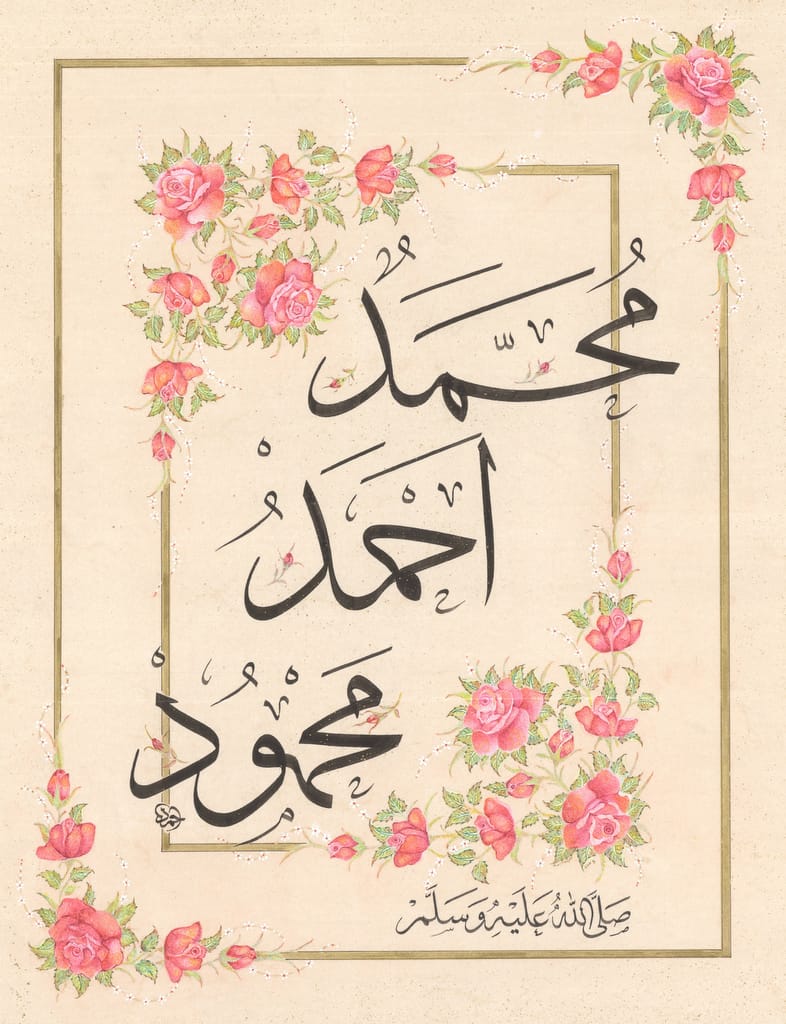 مُحَمَّدٌ
اَحْمَدُ
مَحْمُودْ
صَلَّى اللهُ عَلَيْهِ وَسَلَّمْ